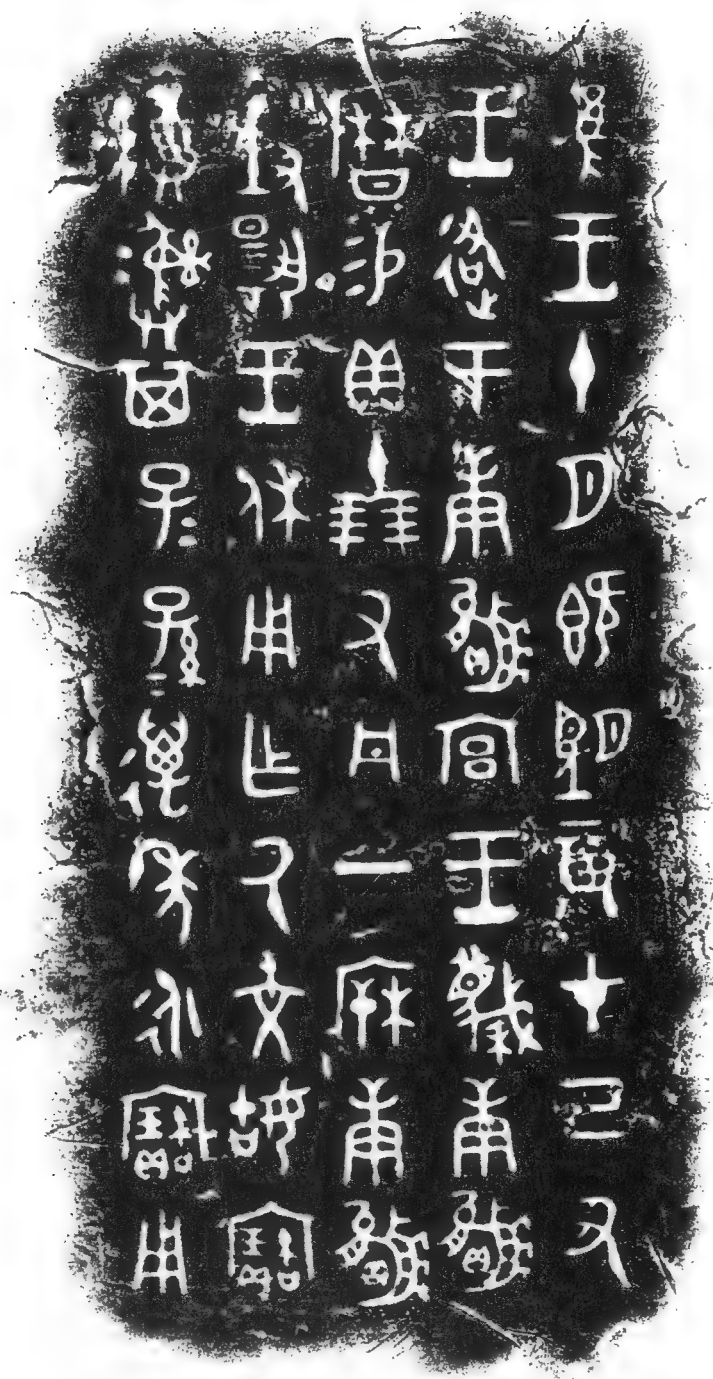 隹王十月既望辰才己丑
王格于庚嬴宮王蔑庚嬴
曆易貝十朋又丹一庚嬴
對揚王休用乍厥文姑寶
尊彝其子=孫=萬年永寶用